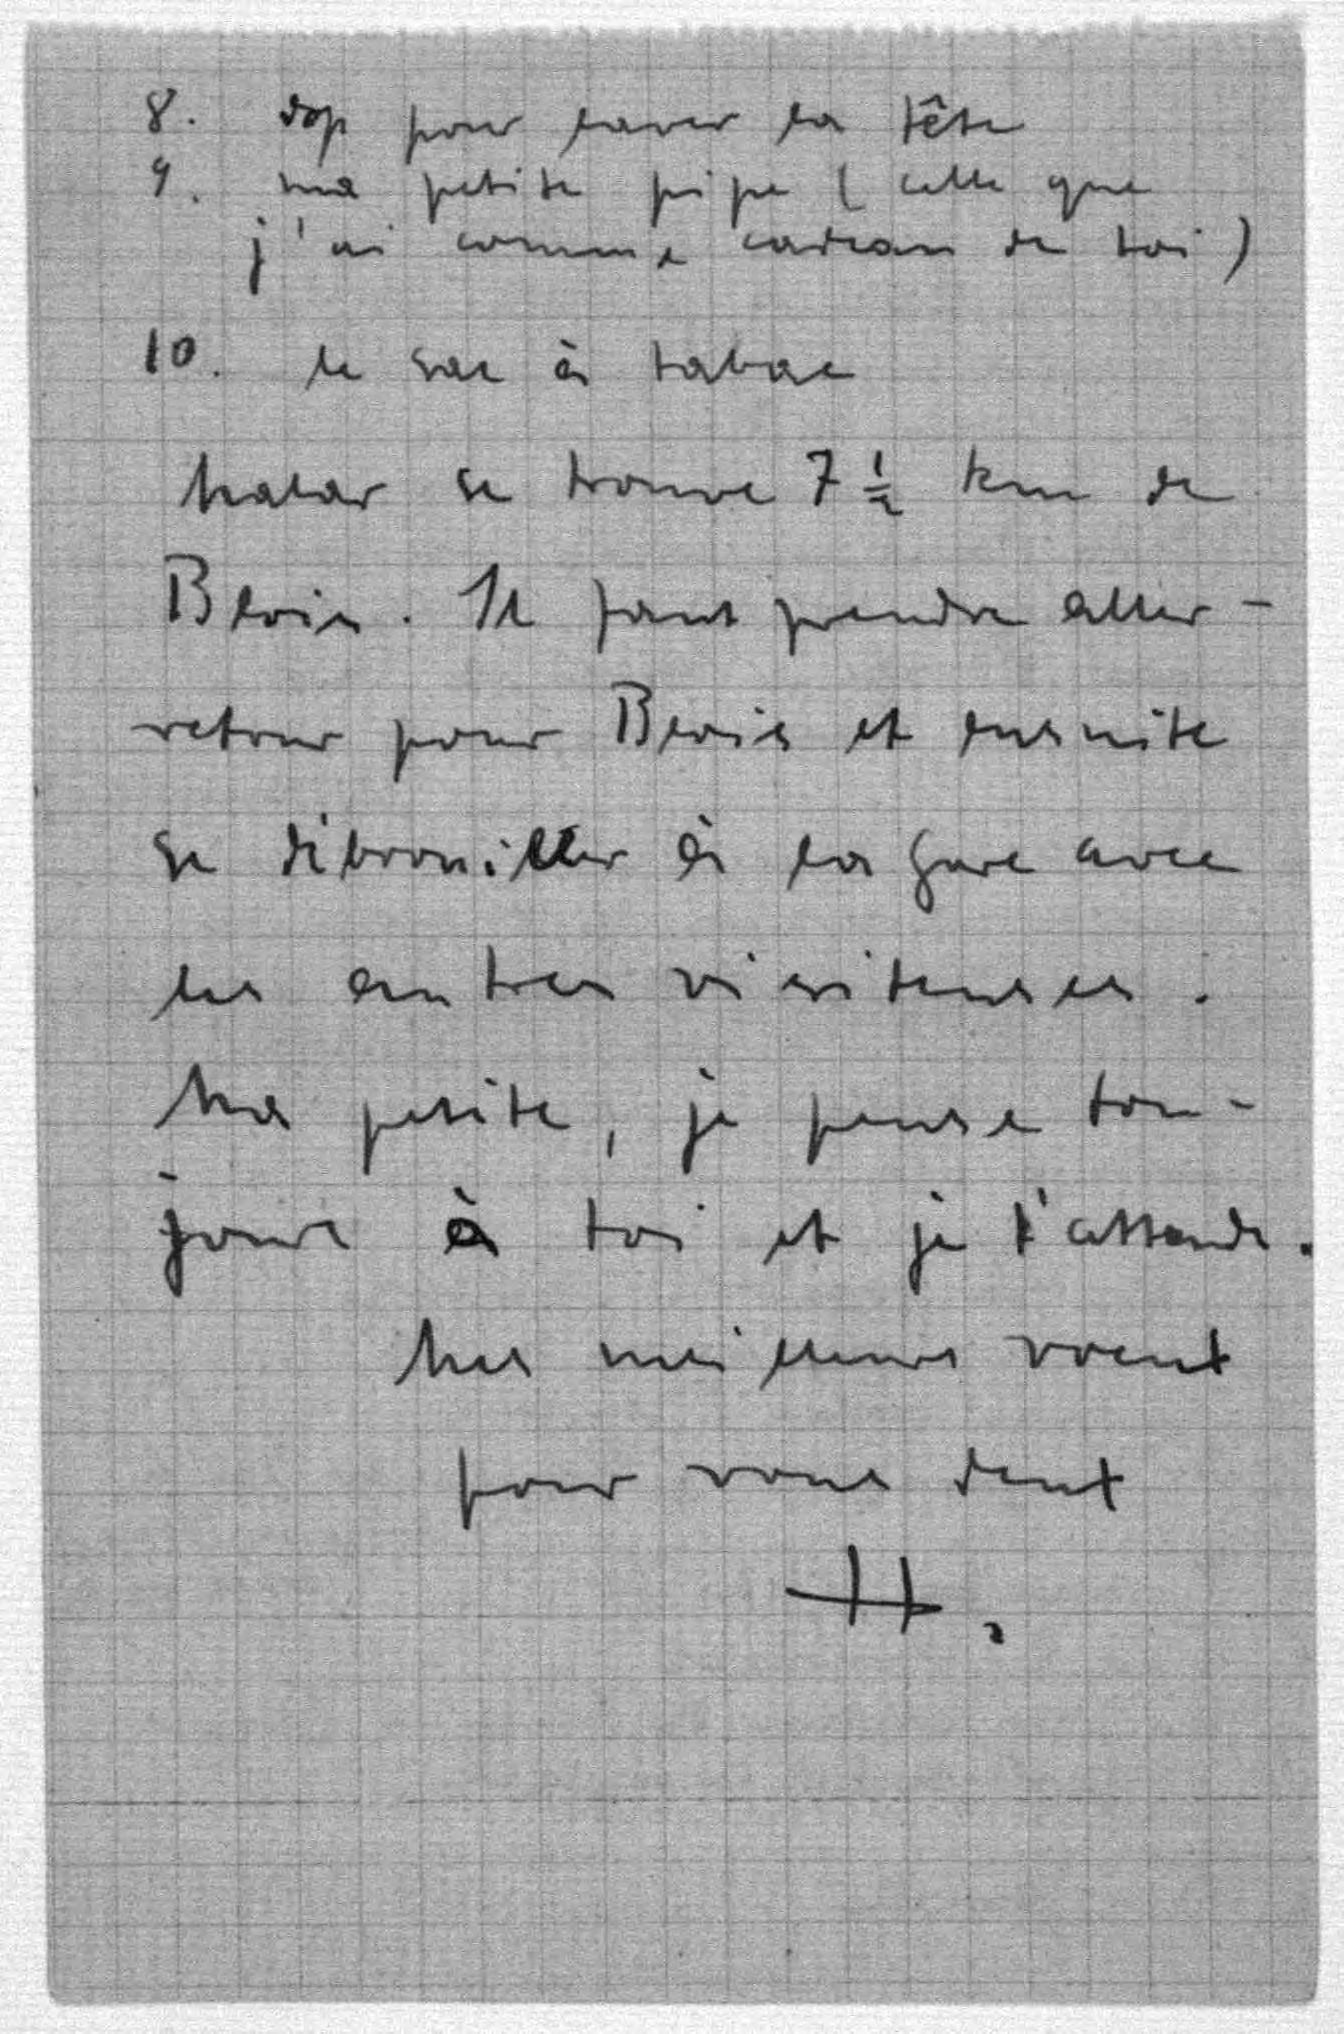 8. dop pour laver la tête
9. ma petite pipe ( celle que
j'ai comme cadeau de toi )
10. le sac à tabac
Malar se trouve 7 ½ km de
Blois. Il faut prendre aller-
retour pour Blois et ensuite
se débrouiller à la gare avec
les autres visiteuses.
Ma petite, je pense tou-
jours à toi et je t'attends.
Mes meilleurs voeux
pour vous deux
H.